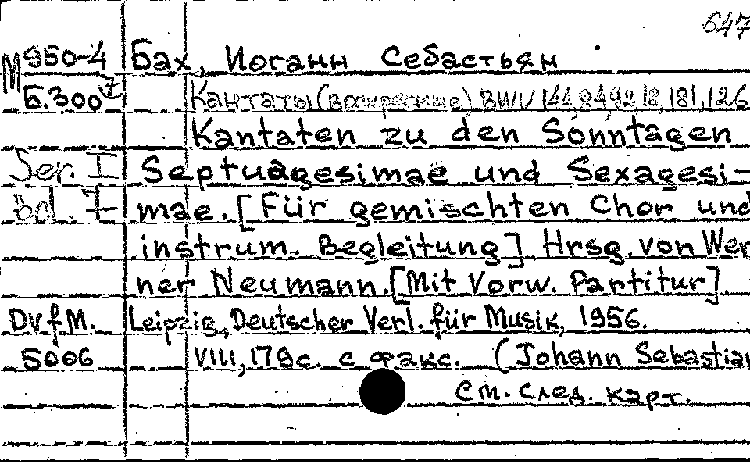 647
М 950-4 Бах, Иоганн Себастьян
Б.300 Кантаты (воскресные) BWV 144, 84, 92, 18, 181, 126
Kantaten zu den Sonntagen
Ser. I Septuagesimae und Sexagesi-
Bd. 7 mae. [Für gemischten Chor und
instrum. Begleitung]. Hrsg. von Wer
ner Neumann. [Mit Vorw. Partitur]
DVfM. Leipzig, Deutscher Verl. für Musik, 1956.
5006 VIII, 179 с. с факс. (Johann Sebastian
См. след. карт.